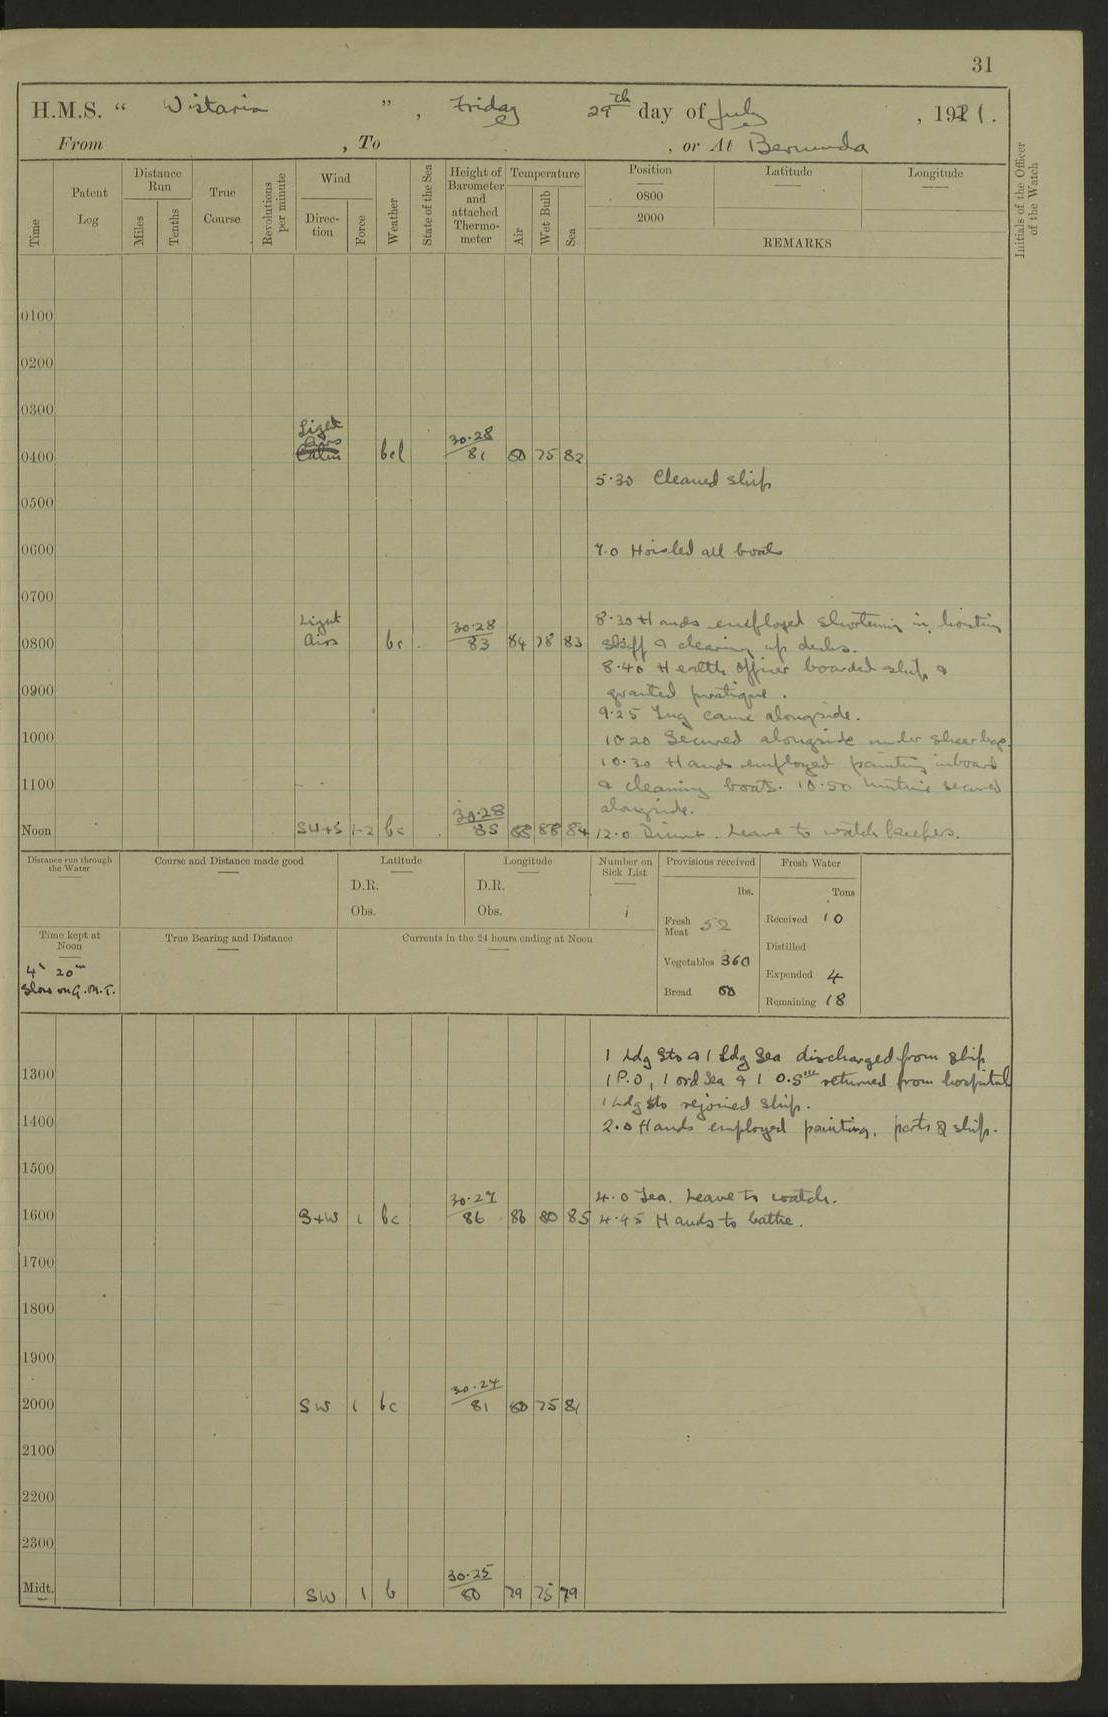 31
H.M.S. " Wistaria ", Friday 29th day of July, 1921.
From , To , or At Bermuda
Time
Patent Log
Distance Run
Miles
Tenths
True Course
Revolutions per minute
Wind
Direction
Force
Weather
State of the Sea
Height of Barometer and attached Thermometer
Temperature
Air
Wet Bulb
Sea
Position
0800
2000
Latitude
Longitude
REMARKS
Initials of the Officer of the Watch
0100
0200
0300
0400 Light Airs bcl 30.28 81 80 75 82
5.30 Cleaned ship
0500
0600
7.0 Hoisted all boats
0700
0800 Light Airs bc 30.28 83 84 78 83
8.30 Hands employed shortening in, hoisting
skiff & clearing up decks.
8.40 Health Officer boarded ship &
granted pratique.
0900
9.25 Tug came alongside.
1000
10.20 Secured alongside under sheer legs.
10.30 Hands employed painting inboard
1100
& cleaning boats. 10.50 secured
alongside.
Noon SW+S 1-2 bc 30.28 85 88 84
12.0 Dinner. Leave to watch keepers.
Distance run through the Water
Course and Distance made good
Latitude
D.R.
Obs.
Longitude
D.R.
Obs.
Number on Sick List
1
Provisions received
lbs.
Fresh Meat 52
Vegetables 360
Bread 60
Fresh Water
Tons
Received 10
Distilled
Expended 4
Remaining 18
Time kept at Noon
4h 20m
Slow on G.M.T.
True Bearing and Distance
Currents in the 24 hours ending at Noon
1 Ldg Sto & 1 Ldg Sea discharged from ship
1300
1 P.O, 1 ord Sea & 1 O.S returned from hospital
1 Ldg Sto rejoined ship.
1400
2.0 Hands employed painting. parts of ship.
1500
4.0 Tea. Leave to watch.
1600 S+W 1 bc 30.27 86 86 80 85
4.45 Hands to bathe.
1700
1800
1900
2000 SW 1 bc 30.24 81 80 75 81
2100
2200
2300
Midt. SW 1 b 30.25 80 79 75 79